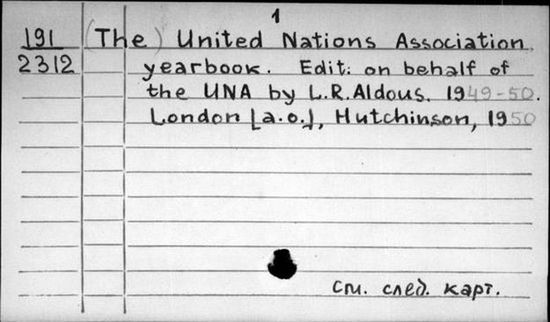 1
191 (The) United Nations Association
2312 yearbook. Edit. on behalf of
the UNA by L.R.Aldous. 1949-50.
London [a.o.], Hutchinson, 1950
См. след. карт.